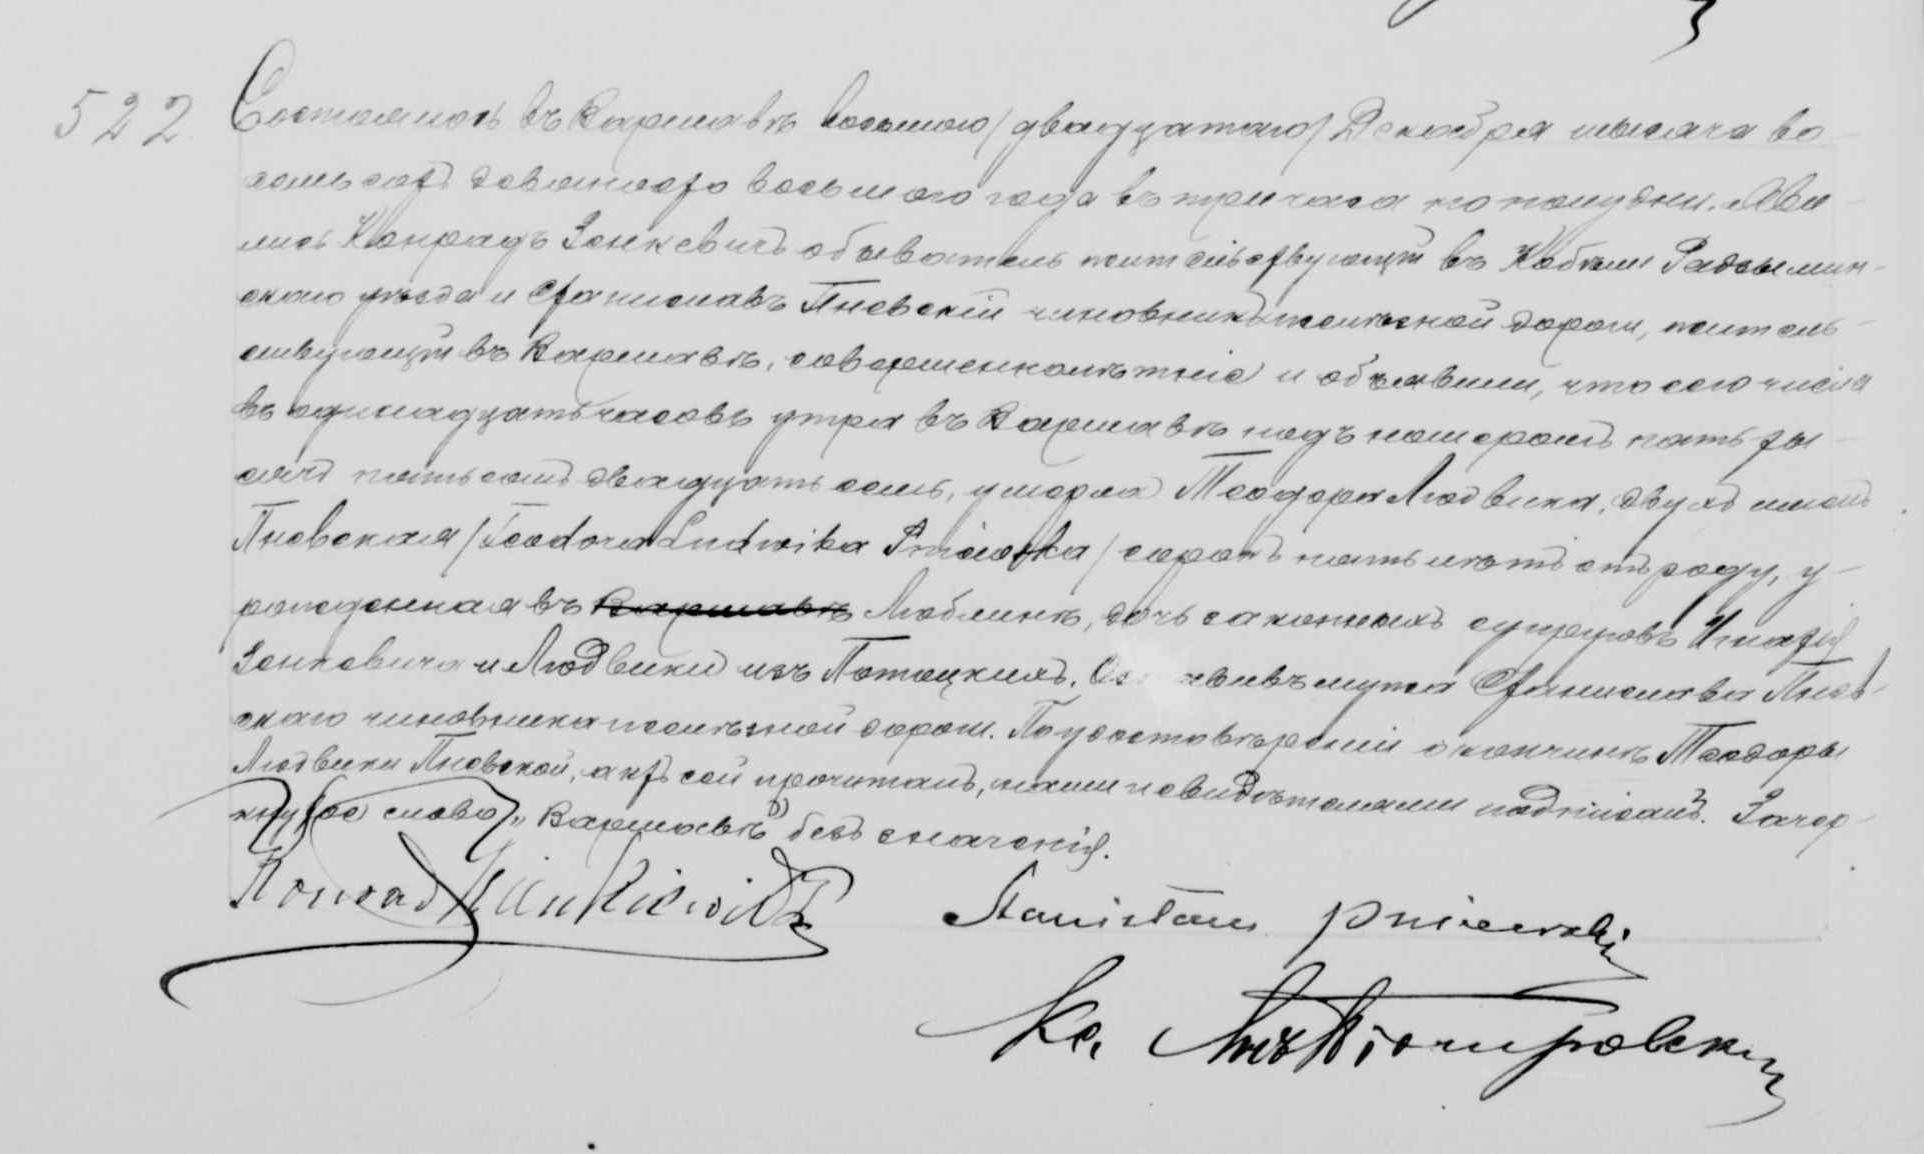 522
Состоялось въ Варшавѣ восьмого /двадцатаго/ Декабря тысяча во-
семьсотъ девяносто восьмого года въ три часа по полудни. Яви-
лись Конрадъ Зенкевичъ обыватель жительствующій въ Кобѣли Радзымин-
скаго уѣзда и Станиславъ Пневскій чиновникъ желѣзной дороги, житель-
ствующій въ Варшавѣ, совершеннолѣтніе и объявили, что сего числа
въ одинадцать часовъ утра въ Варшавѣ подъ номеромъ пять ты-
сячъ пятьсотъ двадцать семь, умерла Теодора Людвика, двухъ именъ
Пневская /Teodora Ludwika Pniewska/ сорокъ пять лѣтъ отъ роду, у-
рожденная въ Варшавѣ Люблинѣ, дочь законныхъ супруговъ Игнатія
Зенкевича и Людвики изъ Потоцкихъ. мужа Станислава Пнев-
скаго чиновника желѣзной дороги. По удостовѣреніи о кончинѣ Теодоры
Людвики Пневской, актъ сей прочитанъ, нами и свидѣтелями подписанъ. Зачер-
кнутое слово „Варшавѣ" безъ значенія.
Konrad Stanisław Pniewski
Кс.